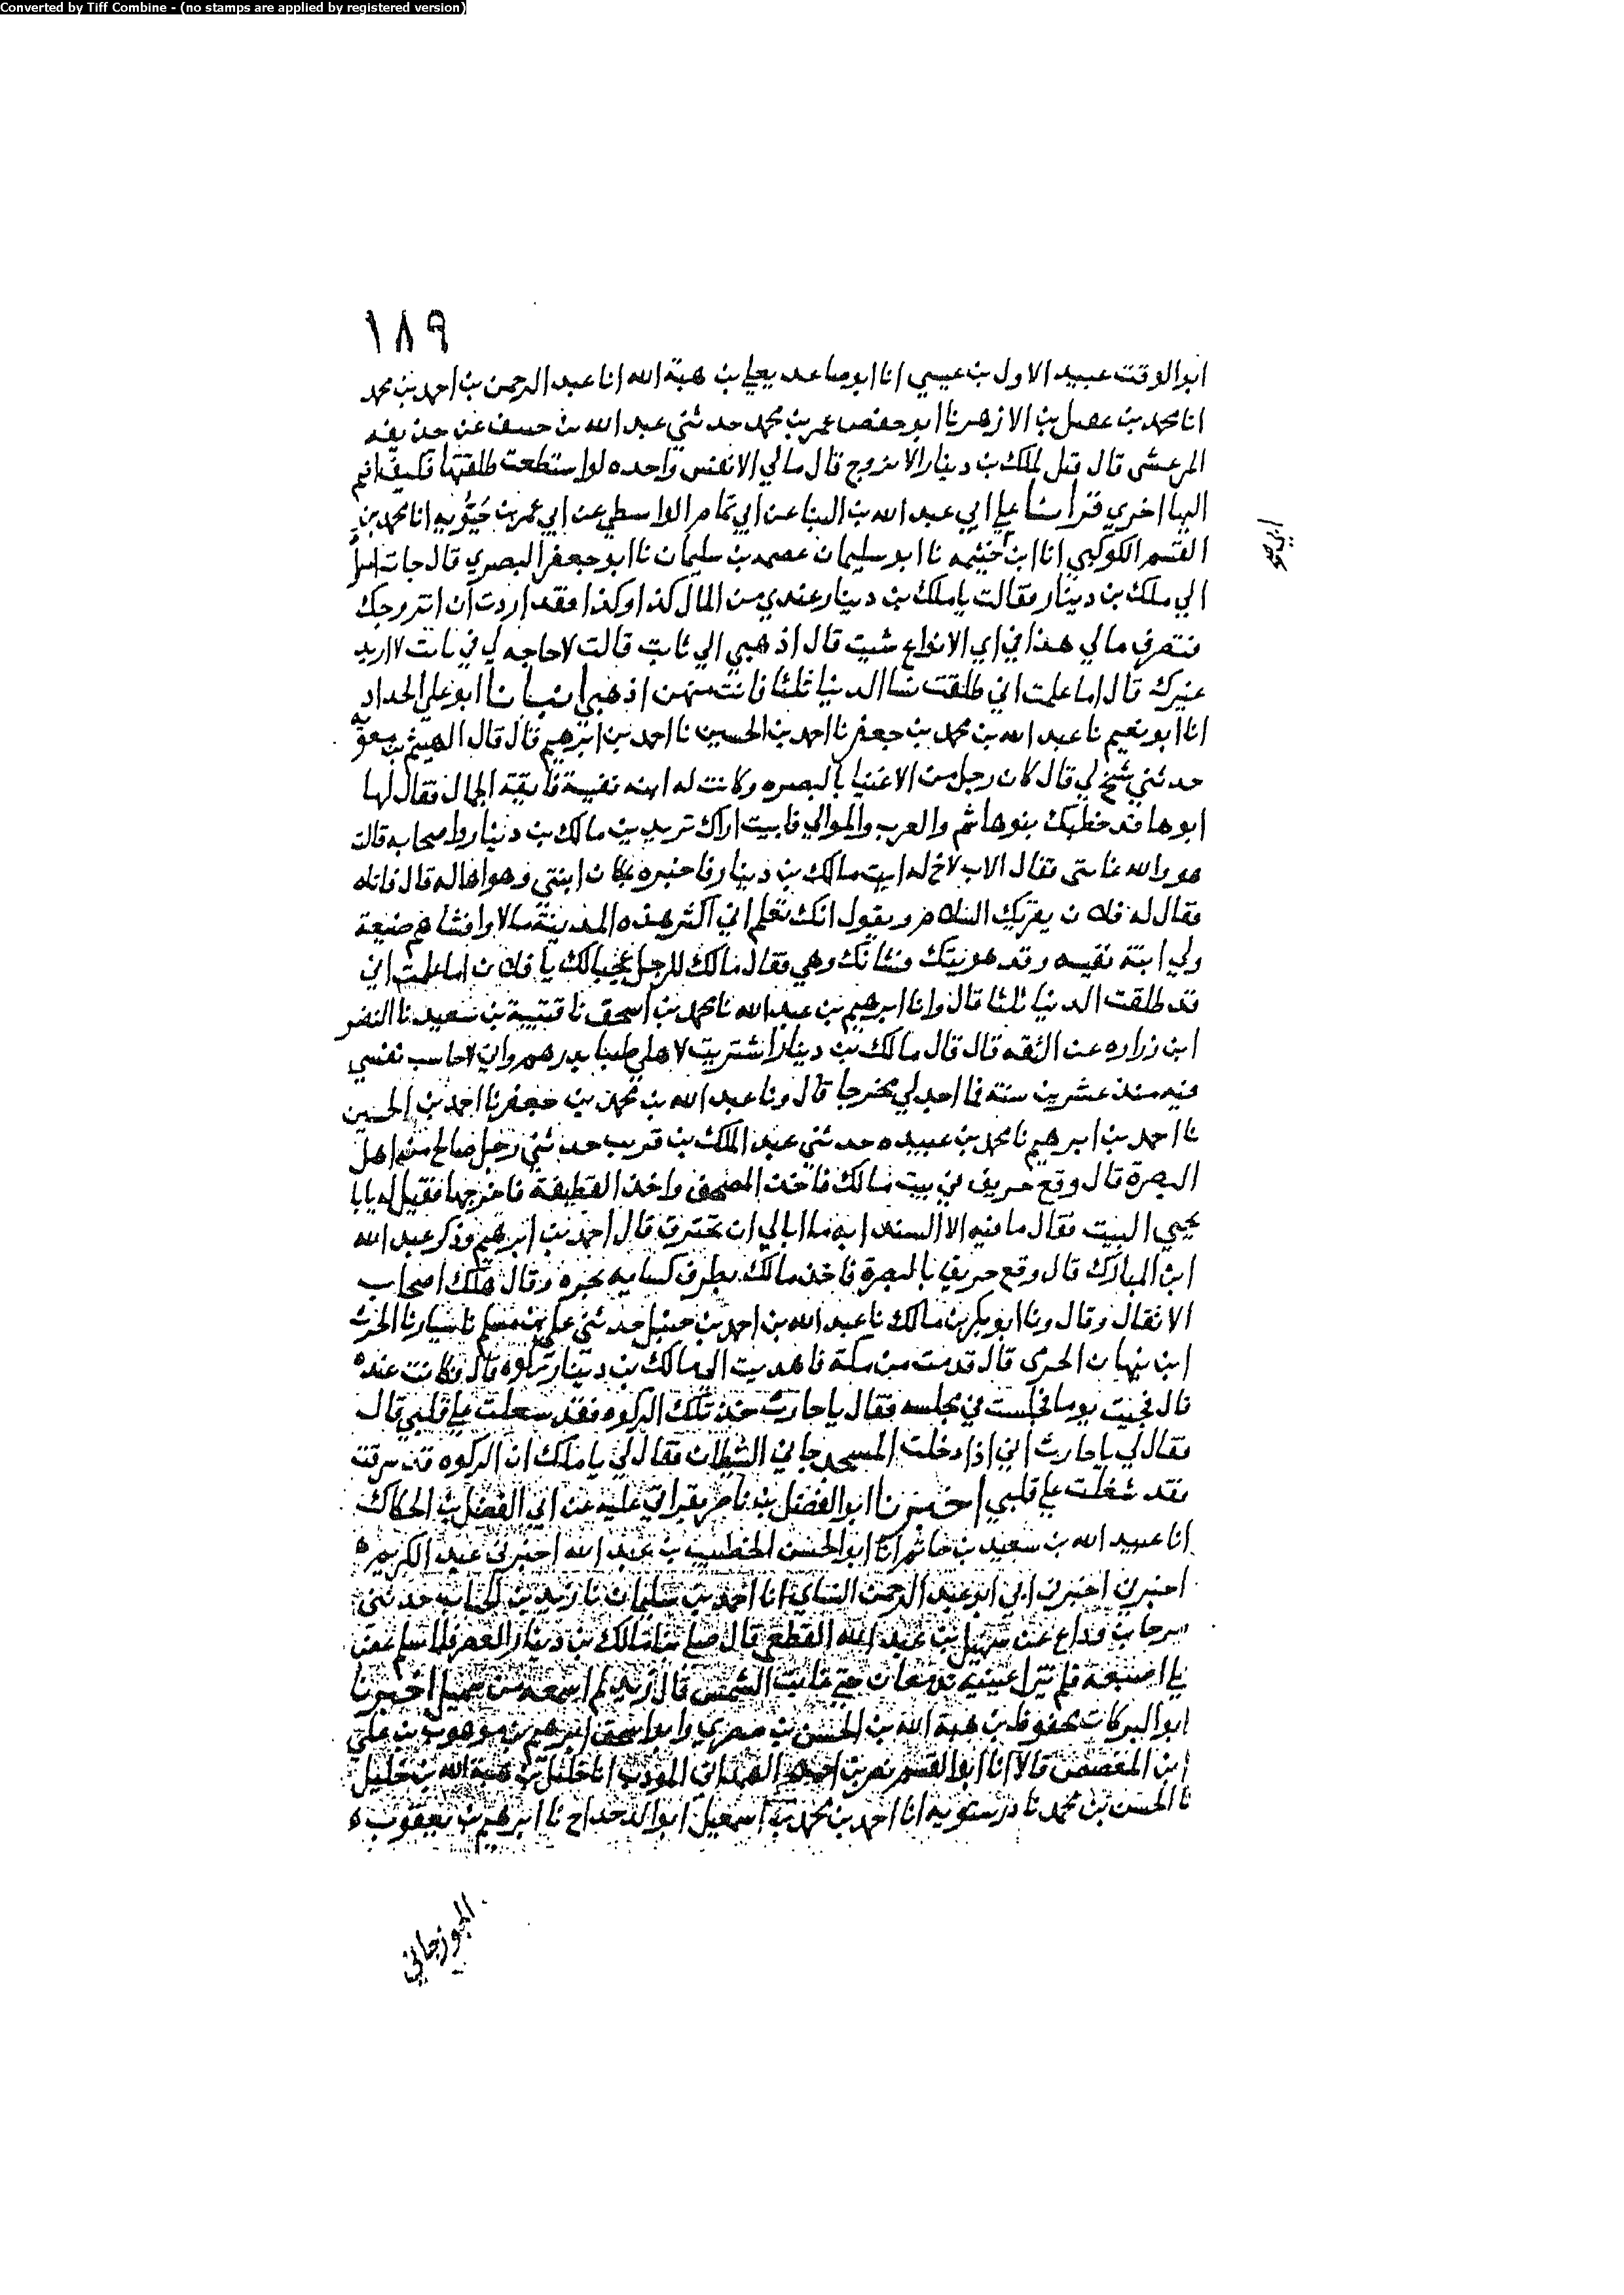 Converted by Tiff Combine - (no stamps are applied by registered version)
١٨٩
ابو الوقت عبيد الاول بن عيسي انا ابو صاعد يعلي بن هبة الله انا عبد الرحمن بن احمد بن محمد
انا محمد بن عقيل بن الازهر نا ابو حفص عمر بن محمد حدثني عبد الله بن عن حذيفه
المرعشى قال قيل لملك بن دينار الا تزوج قال مالي الا نفس واحده لو استطعت طلقتها فكيف اضم
اليها اخري قرأنا علي ابي عبد الله بن البنا عن ابي تمام الواسطي عن ابي عمر بن حيويه انا محمد بن
القسم الكوكبي انا ابن خيثمه نا ابو سليمان عصمه بن سليمان نا ابو جعفر البصري قال جات امرأ
ابي
الي ملك بن دينار فقالت يا ملك بن دينار عندي من المال كذا وكذا وقد اردت ان اتزوجك
فتصرف مالي هذا في اي الانواع شيت قال اذهبي الي ثابت قالت لا حاجه لي في ثابت لا اريد
غيرك قال اما علمت اني طلقت الدنيا ثلثا فانت منهن اذهبي انبانا ابو علي الحداد
انا ابو نعيم نا عبد الله بن محمد بن جعفر نا احمد بن الحسين نا احمد بن ابرهيم قال قال الهيثم بن معوية
حدثني شيخ لي قال كان رجل من الاغنيا بالبصره وكانت له ابنه نفيسة فايقة الجمال فقال لها
ابوها قد خطبك بنو هاشم والعرب والموالي فابيت اراك تريدين مالك بن دينار واصحابه قالت
هو والله غايتى فقال الاب لاخ له ايت مالك بن دينار فاخبره بمكان ابنتي وهواها له قال فاتاه
فقال له فلان يقريك السلام ويقول انك تعلم اني اكثر هذه المدينة مالا وافشاهم ضيعة
ولي ابنة نفيسه وقد هويتك فشانك وهي فقال مالك للرجل عجبا لك يا فلان اما علمت اني
قد طلقت الدنيا ثلثا قال وانا ابرهيم بن عبد الله نا محمد بن اسحق نا قتيبة بن سعيد نا النضر
ابن زراره عن الثقه قال قال مالك بن دينار اشتريت لاهلي طيبا بدرهم واني لاحاسب نفسي
فيه منذ عشرين سنة فما اجد لي مخرجا قال ونا عبد الله بن محمد بن جعفر نا احمد بن الحسين
نا احمد بن ابرهيم نا محمد بن عبيده حدثني عبد الملك بن قريب حدثني رجل صالح من اهل
البصرة قال وقع حريق في بيت مالك فاخذ المصحف واخذ القطيفة فاخرجها فقيل له يابا
يحيي البيت فقال ما فيه الا السندانه ما ابالي ان تحترق قال احمد بن ابرهيم وذكر عبد الله
ابن المبارك قال وقع حريق بالبصرة فاخذ مالك بطرف كسايه يجره وقال هلك اصحاب
الاثقال وقال ونا ابو بكر بن مالك نا عبد الله بن احمد بن حنبل حدثني علي بن مسلم نا سيار نا الحرث
ابن نبهان الجرى قال قدمت من مكة فاهديت الي مالك بن دينار ركوه قال وكانت عنده
قال فجيت يوما فجلست في مجلسه فقال يا حارث خذ تلك الركوه فقد شغلت علي قلبي قال
فقال لي يا حارث اني اذا دخلت المسجد جاني الشيطان فقال لي يا ملك ان الركوه قد سرقت
فقد شغلت علي قلبي اخبرنا ابو الفضل بن ناصر بقراتي عليه عن ابي الفضل بن الحكاك
انا عبيد الله بن سعيد بن حاتم انا ابو الحسن الخطيب بن عبد الله اخبرني عبد الكريم
اخبرني اخبرني ابي ابو عبد الرحمن النساي انا احمد بن سليمان نا زيد بن الحباب حدثني
مرجا بن وداع عن سهيل بن عبد الله القطعي قال صلي بنا مالك بن دينار العصر فلما سلم عض
علي اصبعه فلم تزل عينيه تدمعان حتي غابت الشمس قال زيد لم اسمعه من سهيل اخبرنا
ابو البركات محفوظ بن هبة الله بن الحسن بن صصري وابو اسحق ابرهيم بن موهوب بن علي
ابن المقصص قالا انا ابو القسم نصر بن احمد الهمداني المودب انا خليل بن هبة الله بن خليل
نا الحسن بن محمد نا درستويه انا احمد بن محمد بن اسمعيل ابو الدحداح نا ابرهيم بن يعقوب
الجوزجاني